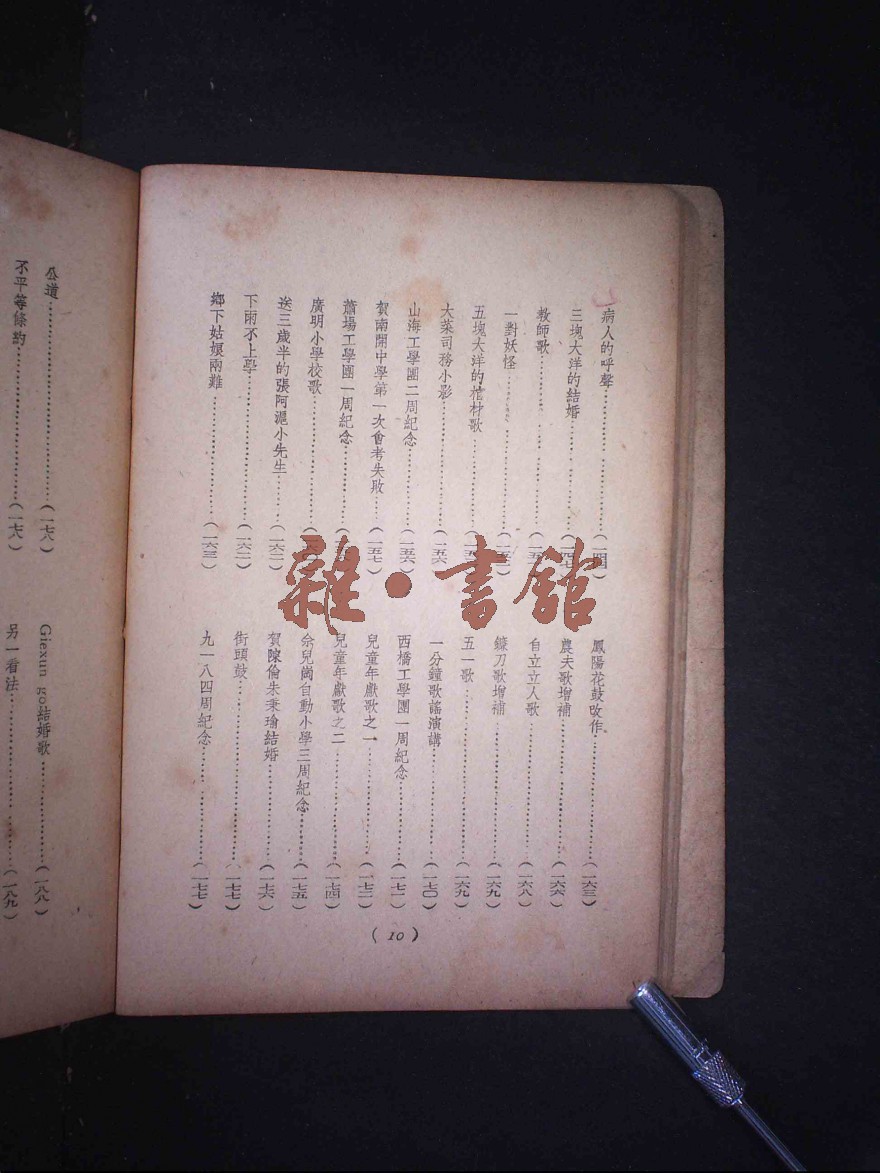 病人的呼聲
三塊大洋的結婚
教師歌
一對妖怪
五塊大洋的棺材歌
大菜司務小影
(一五六)
山海工學團二周紀念
(一五六)
賀南開中學第一次會考失敗
(一五七)
蕭場工學團一周紀念
廣明小學校歌
送三歲半的張阿滬小先生
下雨不上學
鄉下姑娘兩難
(一六三)
鳳陽花鼓改作
(一六三)
農夫歌增補
(一六六)
自立立人歌
(一六八)
鐮刀歌增補
(一六九)
五一歌
(一六九)
一分鐘歌謠演講
(一七〇)
西橋工學團一周紀念
(一七一)
兒童年獻歌之一
兒童年獻歌之二
(一七四)
佘兒崗自動小學三周紀念
(一七五)
賀陳倫朱秉瑜結婚
(一七六)
街頭鼓
(一七七)
九一八四周紀念
(一七七)
(10)
公道
(一七八)
不平等條約
(一七八)
Giexun go結婚歌
(一八八)
另一看法
(一八九)
雜·書館